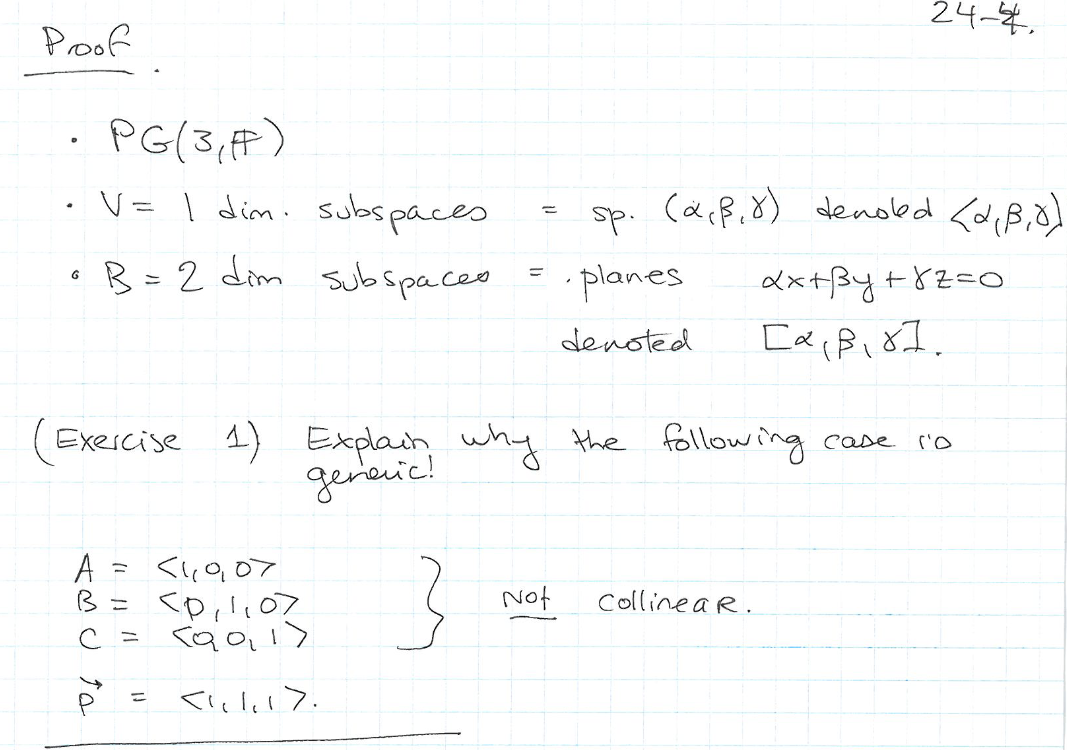 24-4.
Proof.
• PG(3,𝔽)
• V = 1 dim. subspaces = sp. (α,β,γ) denoted <α,β,γ>
• B = 2 dim subspaces = planes αx+βy+γz=0
denoted [α,β,γ].
(Exercise 1) Explain why the following case is
generic!
A = <1,0,0>
B = <0,1,0>
C = <0,0,1>
} Not collinear.
p⃗ = <1,1,1>.